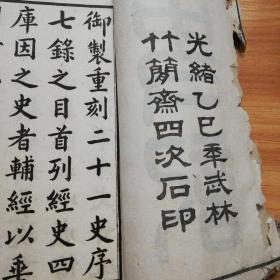 光緒乙巳年武林
竹簡齋四次石印
御製重刻二十一史序
七錄之目首列經史四
庫因之史者輔經以垂